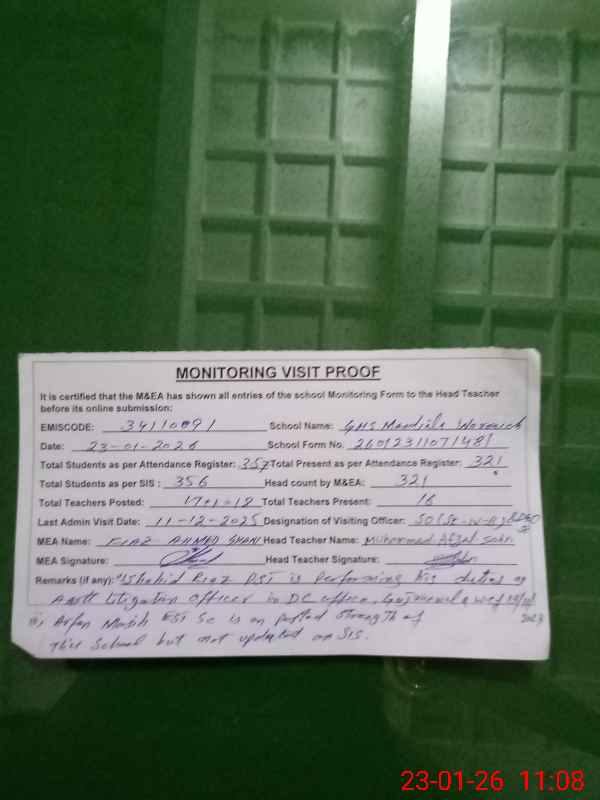 MONITORING VISIT PROOF
It is certified that the M&EA has shown all entries of the school Monitoring Form to the Head Teacher
before its online submission:
EMISCODE: 34110091 School Name: GHS Mandiala Waraich
Date: 23-01-2026 School Form No. 26012311071481
Total Students as per Attendance Register: 357 Total Present as per Attendance Register: 321
Total Students as per SIS: 356 Head count by M&EA: 321
Total Teachers Posted: 17+1=18 Total Teachers Present: 16
Last Admin Visit Date: 11-12-2025 Designation of Visiting Officer:
MEA Name: FIAZ AHMED GHANI Head Teacher Name: Muhammad Afzal
MEA Signature: Head Teacher Signature:
Remarks (if any): Shahid Riaz is performing his duties as
Litigation Officer in DC office,
ii, Arfan Masih EST Sc is on posted strength of 2023
this School but not updated on SIS.
23-01-26 11:08